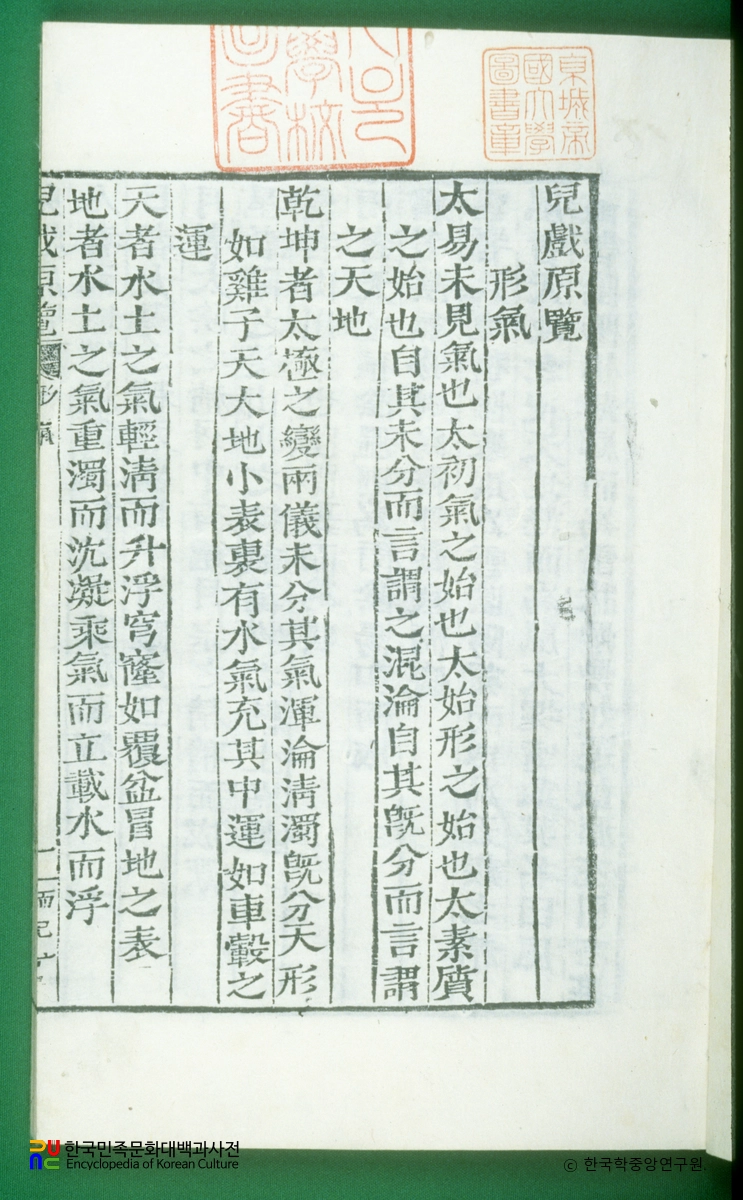 京城帝
國大學
圖書章
學校
圖書
兒戲原覽
形氣
太易未見氣也太初氣之始也太始形之始也太素質
之始也自其未分而言謂之混淪自其旣分而言謂
之天地
乾坤者太極之變兩儀未分其氣渾淪淸濁旣分天形
如雞子天大地小表裏有水氣充其中運如車轂之
運
天者水土之氣輕淸而升浮穹窿如覆盆冒地之表
地者水土之氣重濁而沈凝乘氣而立載水而浮
兒戲原覽 形氣 一
한국민족문화대백과사전
Encyclopedia of Korean Culture
© 한국학중앙연구원.